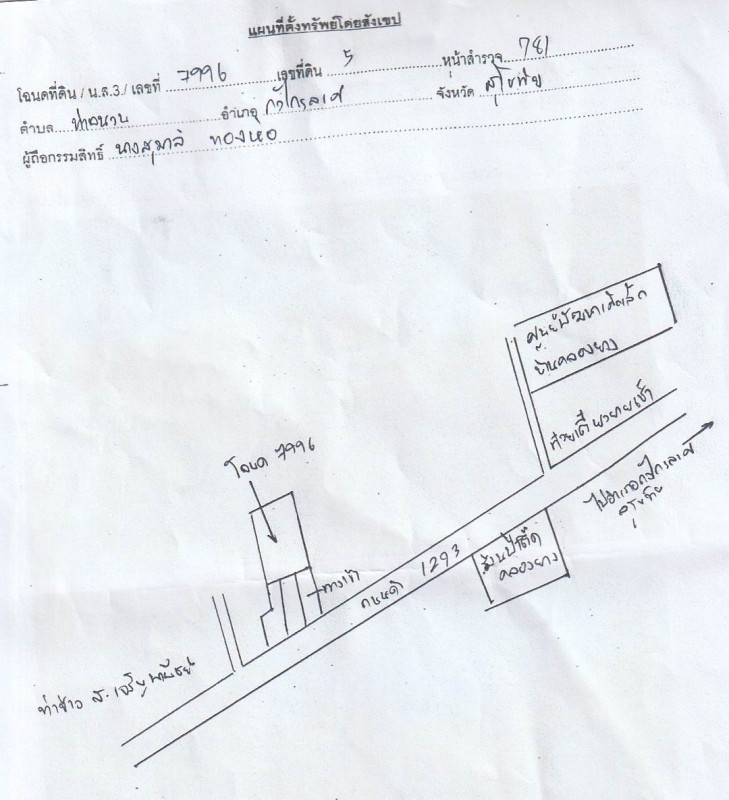 แผนที่ตั้งทรัพย์โดยสังเขป
โฉนดที่ดิน / น.ส.3./ เลขที่ 7996 เลขที่ดิน 5 หน้าสำรวจ 781
ตำบล ท่าฉนวน อำเภอ กงไกรลาศ จังหวัด สุโขทัย
ผู้ถือกรรมสิทธิ์ นางสุมาลี ทองเหอ
ศูนย์พัฒนาเด็กเล็ก
บ้านคลองยาง
ก๋วยเตี๋ยว
โฉนด 7996
ไปอำเภอกงไกรลาศ
สุโขทัย
ทางเข้า
ถนนดำ 1293
คลองยาง
ท่าข้าว ส. เจริญพาณิชย์